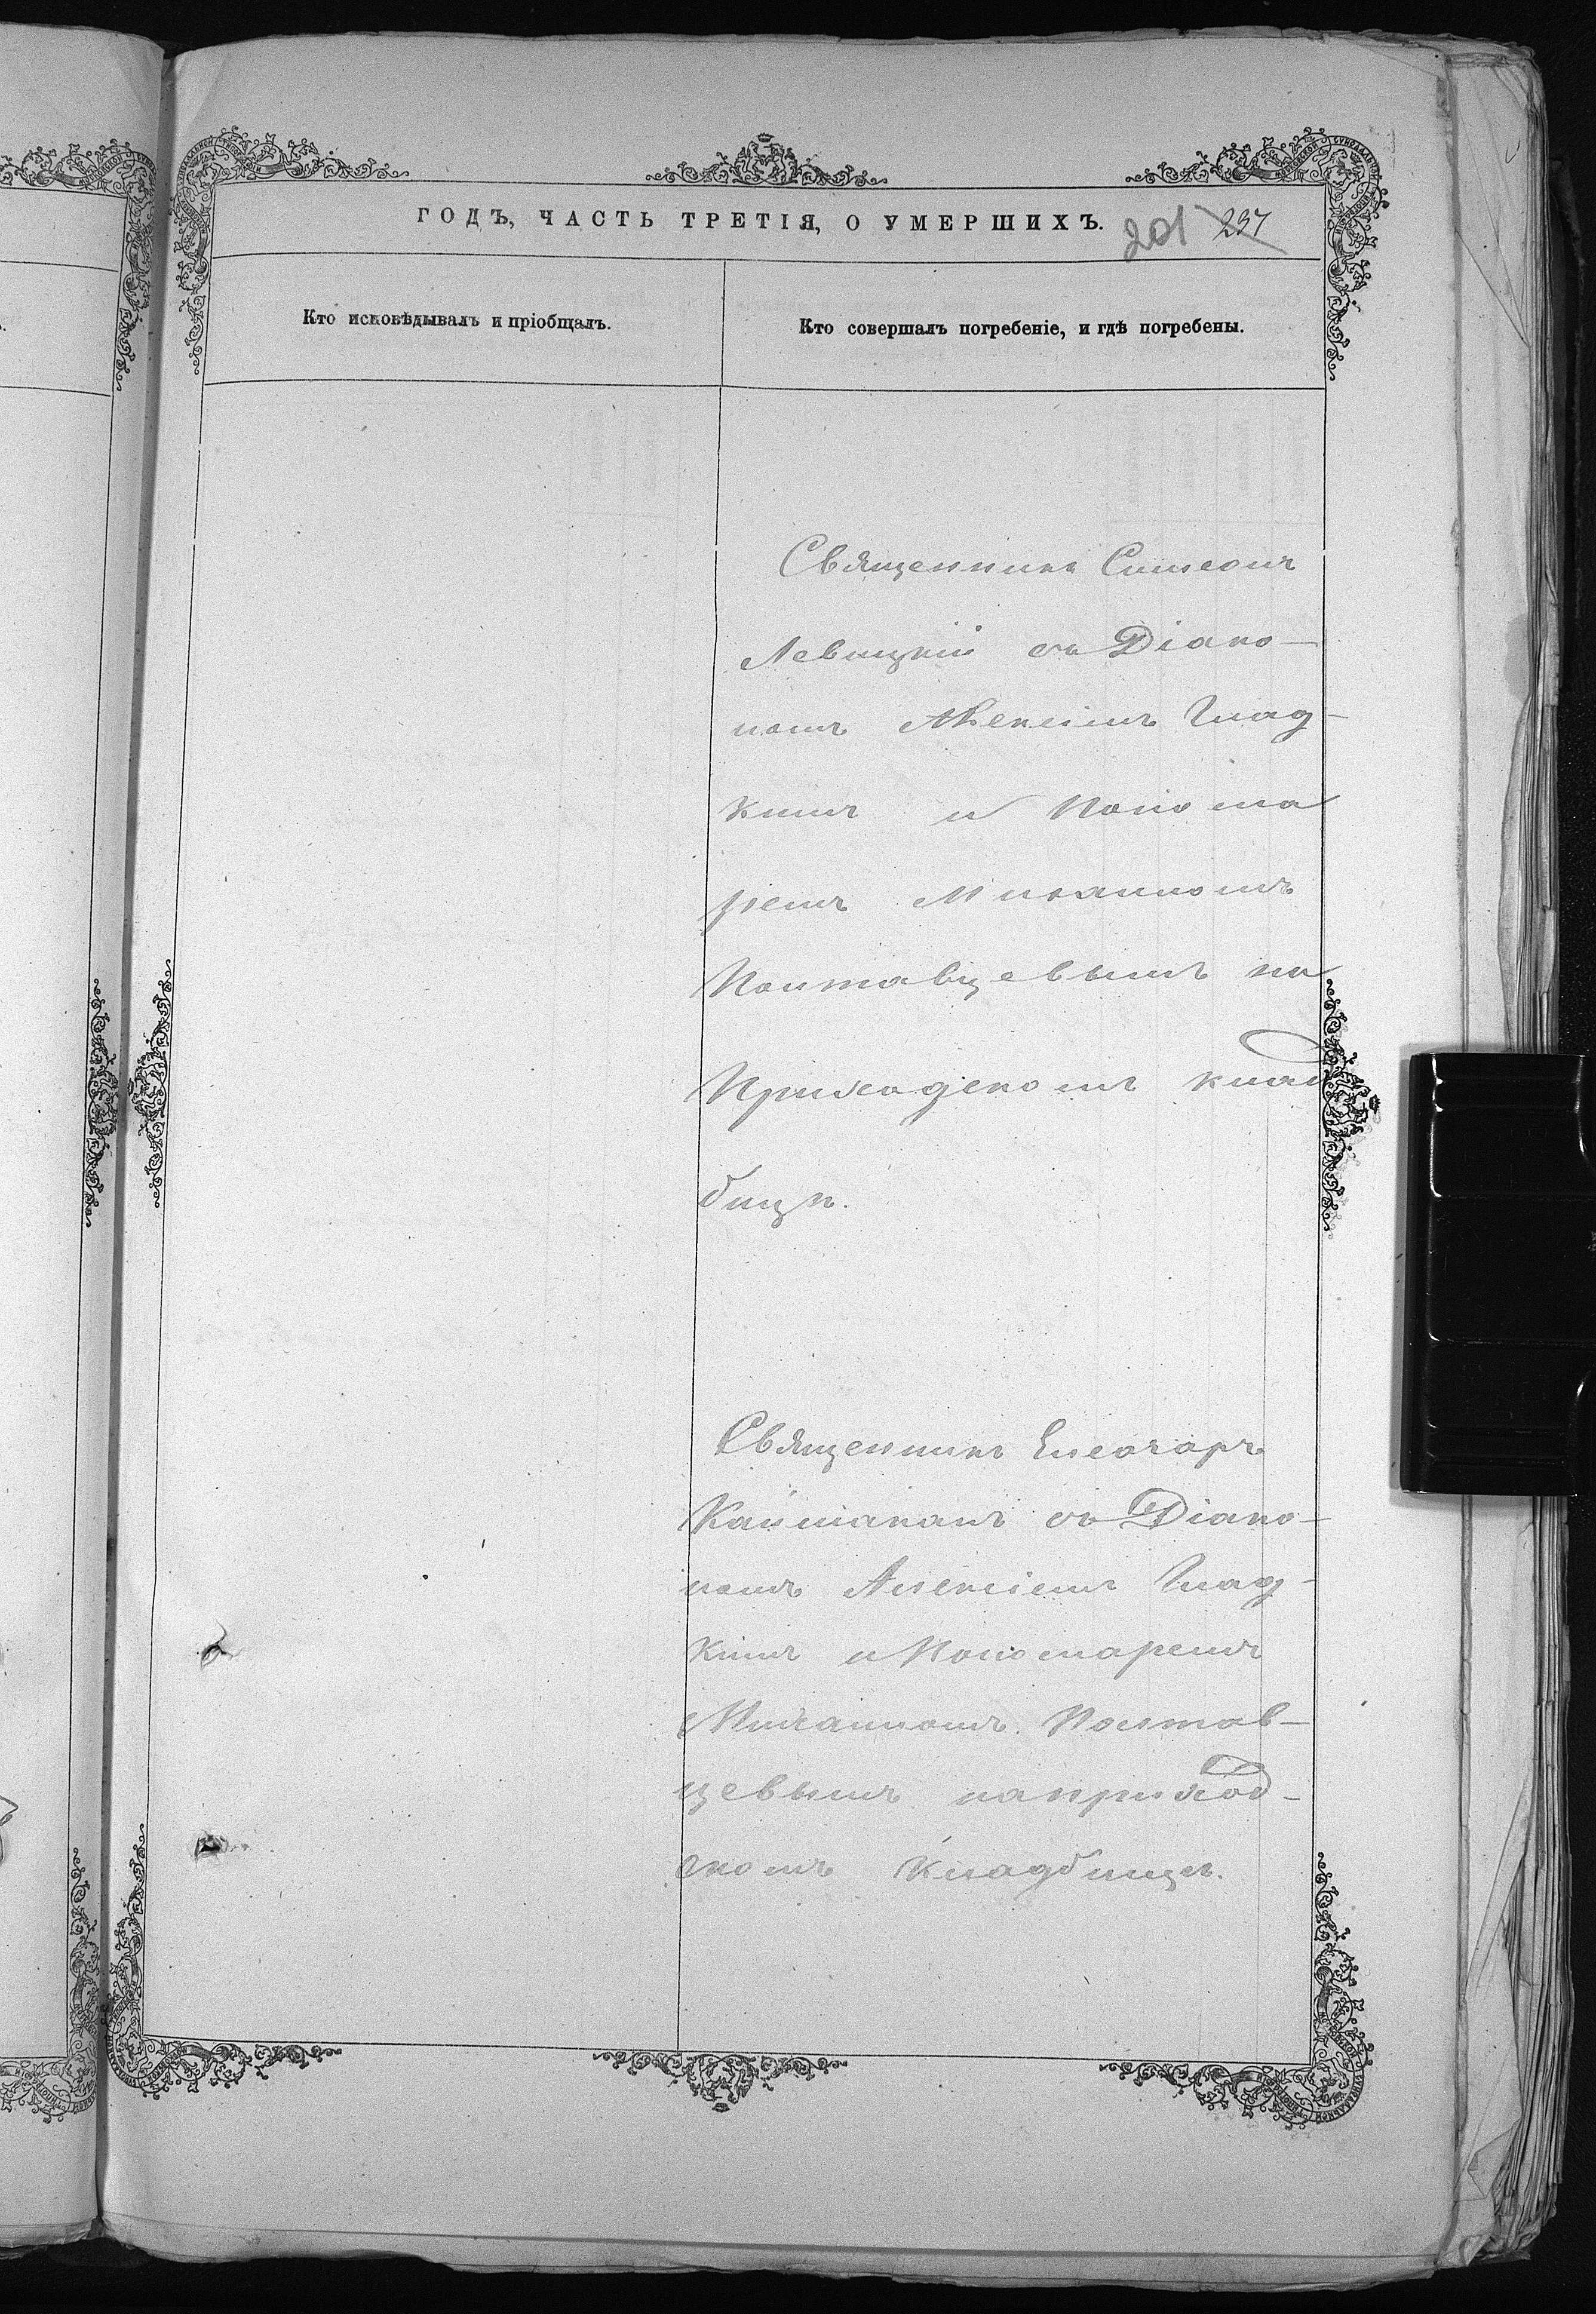 ГОДЪ, ЧАСТЬ ТРЕТІЯ, О УМЕРШИХЪ. 201 237
Кто исповѣдывалъ и пріобщалъ.
Кто совершалъ погребеніе, и гдѣ погребены.
Священникъ Симеонъ
Левицкій съ Діако-
номъ Алексіемъ Глад-
кимъ и Понома
ремъ Михаиломъ
Полтавцевымъ на
Приходскомъ клад
бищѣ.
Священникъ Елеазаръ
Каймаканъ съ Діако-
номъ Алексіемъ Глад-
кимъ и Пономаремъ
Михаиломъ Полтав-
цевымъ на приход-
скомъ кладбищѣ.